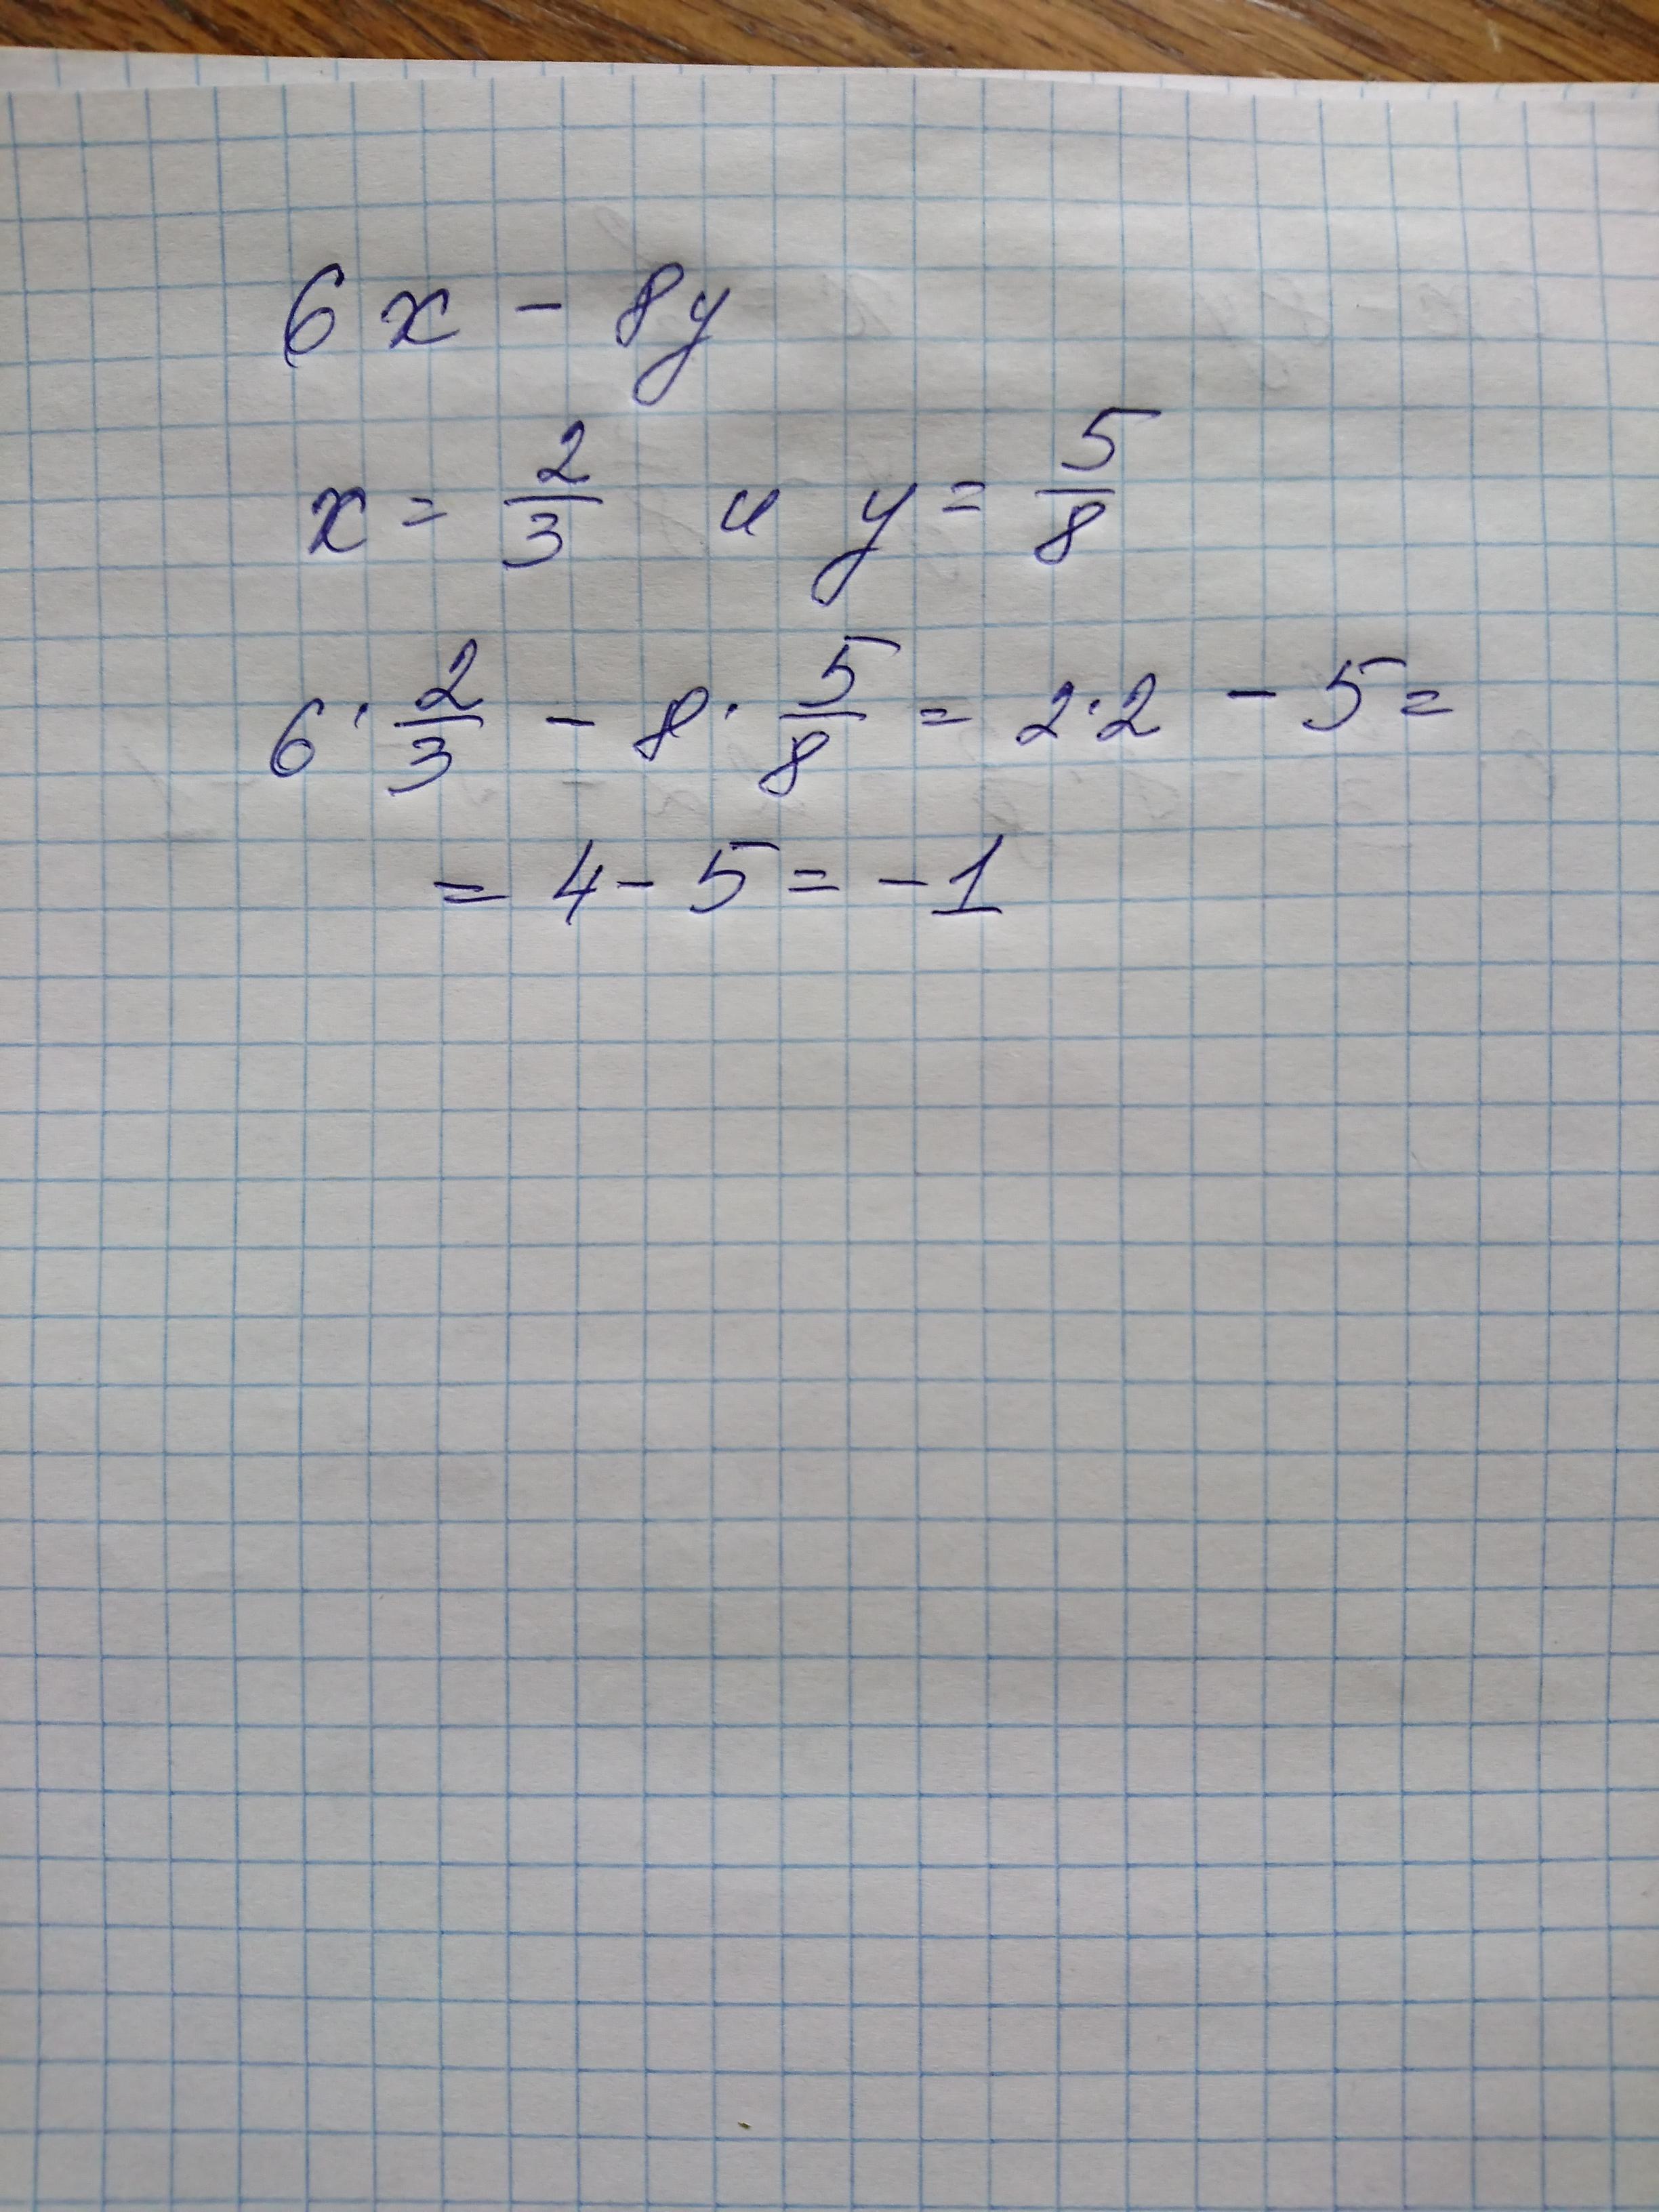 6x - 8y
x = 2/3 и y = 5/8
6 · 2/3 - 8 · 5/8 = 2·2 - 5 =
= 4 - 5 = -1